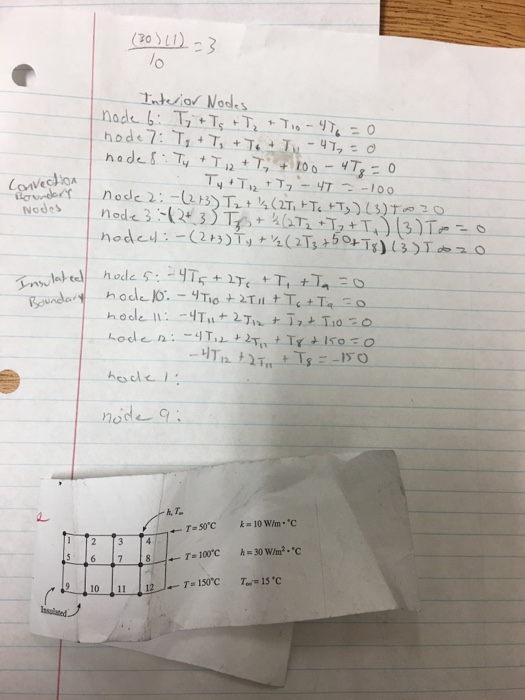 (30)(1)
10
= 3
Interior Nodes
node 6: T7 + T5 + T2 + T10 - 4T6 = 0
node 7: T8 + T3 + T6 + T11 - 4T7 = 0
node 8: T4 + T12 + T7 + 100 - 4T8 = 0
T4 + T12 + T7 - 4T = -100
Convection Boundary Nodes
node 2: -(2+3)T2 + ½(2T1 + T6 + T3)(3)T∞ = 0
node 3: -(2+3)T3 + ½(2T2 + T7 + T4)(3)T∞ = 0
node 4: -(2+3)T4 + ½(2T3 + 50 + T8)(3)T∞ = 0
Insulated Boundary
node 5: -4T5 + 2T6 + T1 + T9 = 0
node 10: -4T10 + 2T11 + T6 + T9 = 0
node 11: -4T11 + 2T12 + T7 + T10 = 0
node 12: -4T12 + 2T11 + T8 + 150 = 0
-4T12 + 2T11 + T8 = -150
node 1:
node 9:
h, T∞
T = 50°C k = 10 W/m·°C
1 2 3 4
T = 100°C h = 30 W/m²·°C
5 6 7 8
T = 150°C T∞ = 15 °C
9 10 11 12
Insulated